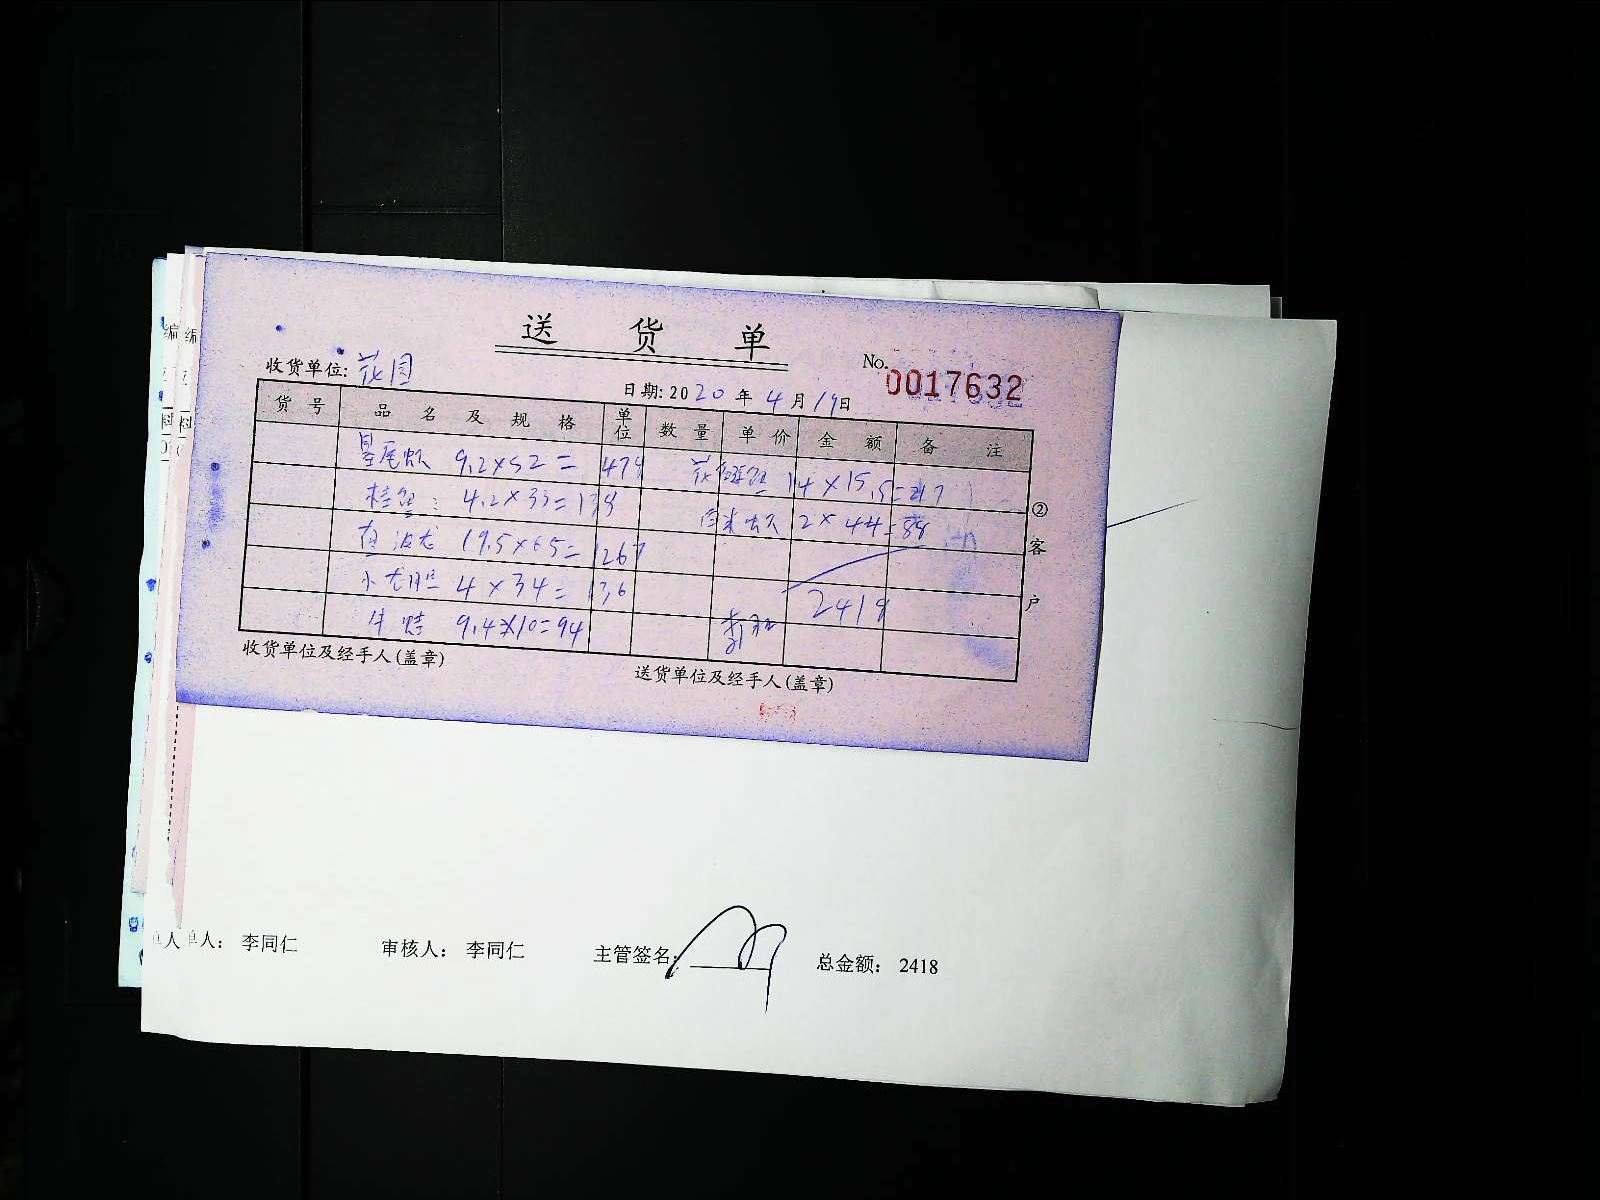 送 货 单
收货单位: 花园
No. 0017632
日期: 2020 年 4 月 19 日
货 号 品 名 及 规 格 单位 数 量 单 价 金 额 备 注
9.2×52= 478 14×15.5=217
桂 4.2×33=139 2×44=88
19.5×65=1267
4×34=136
2418
牛蛙 9.4×10=94
② 客 户
收货单位及经手人(盖章)
送货单位及经手人(盖章)
单人: 李同仁 审核人: 李同仁 主管签名: 总金额: 2418